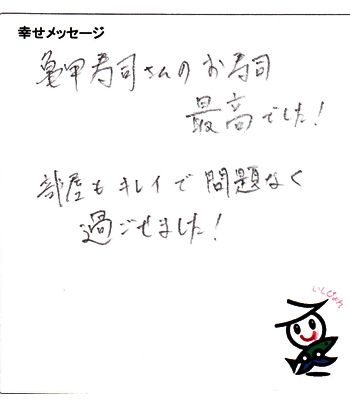 幸せメッセージ
亀甲寿司さんのお寿司
最高でした!
部屋もキレイで問題なく
過ごせました!
いしぴょん